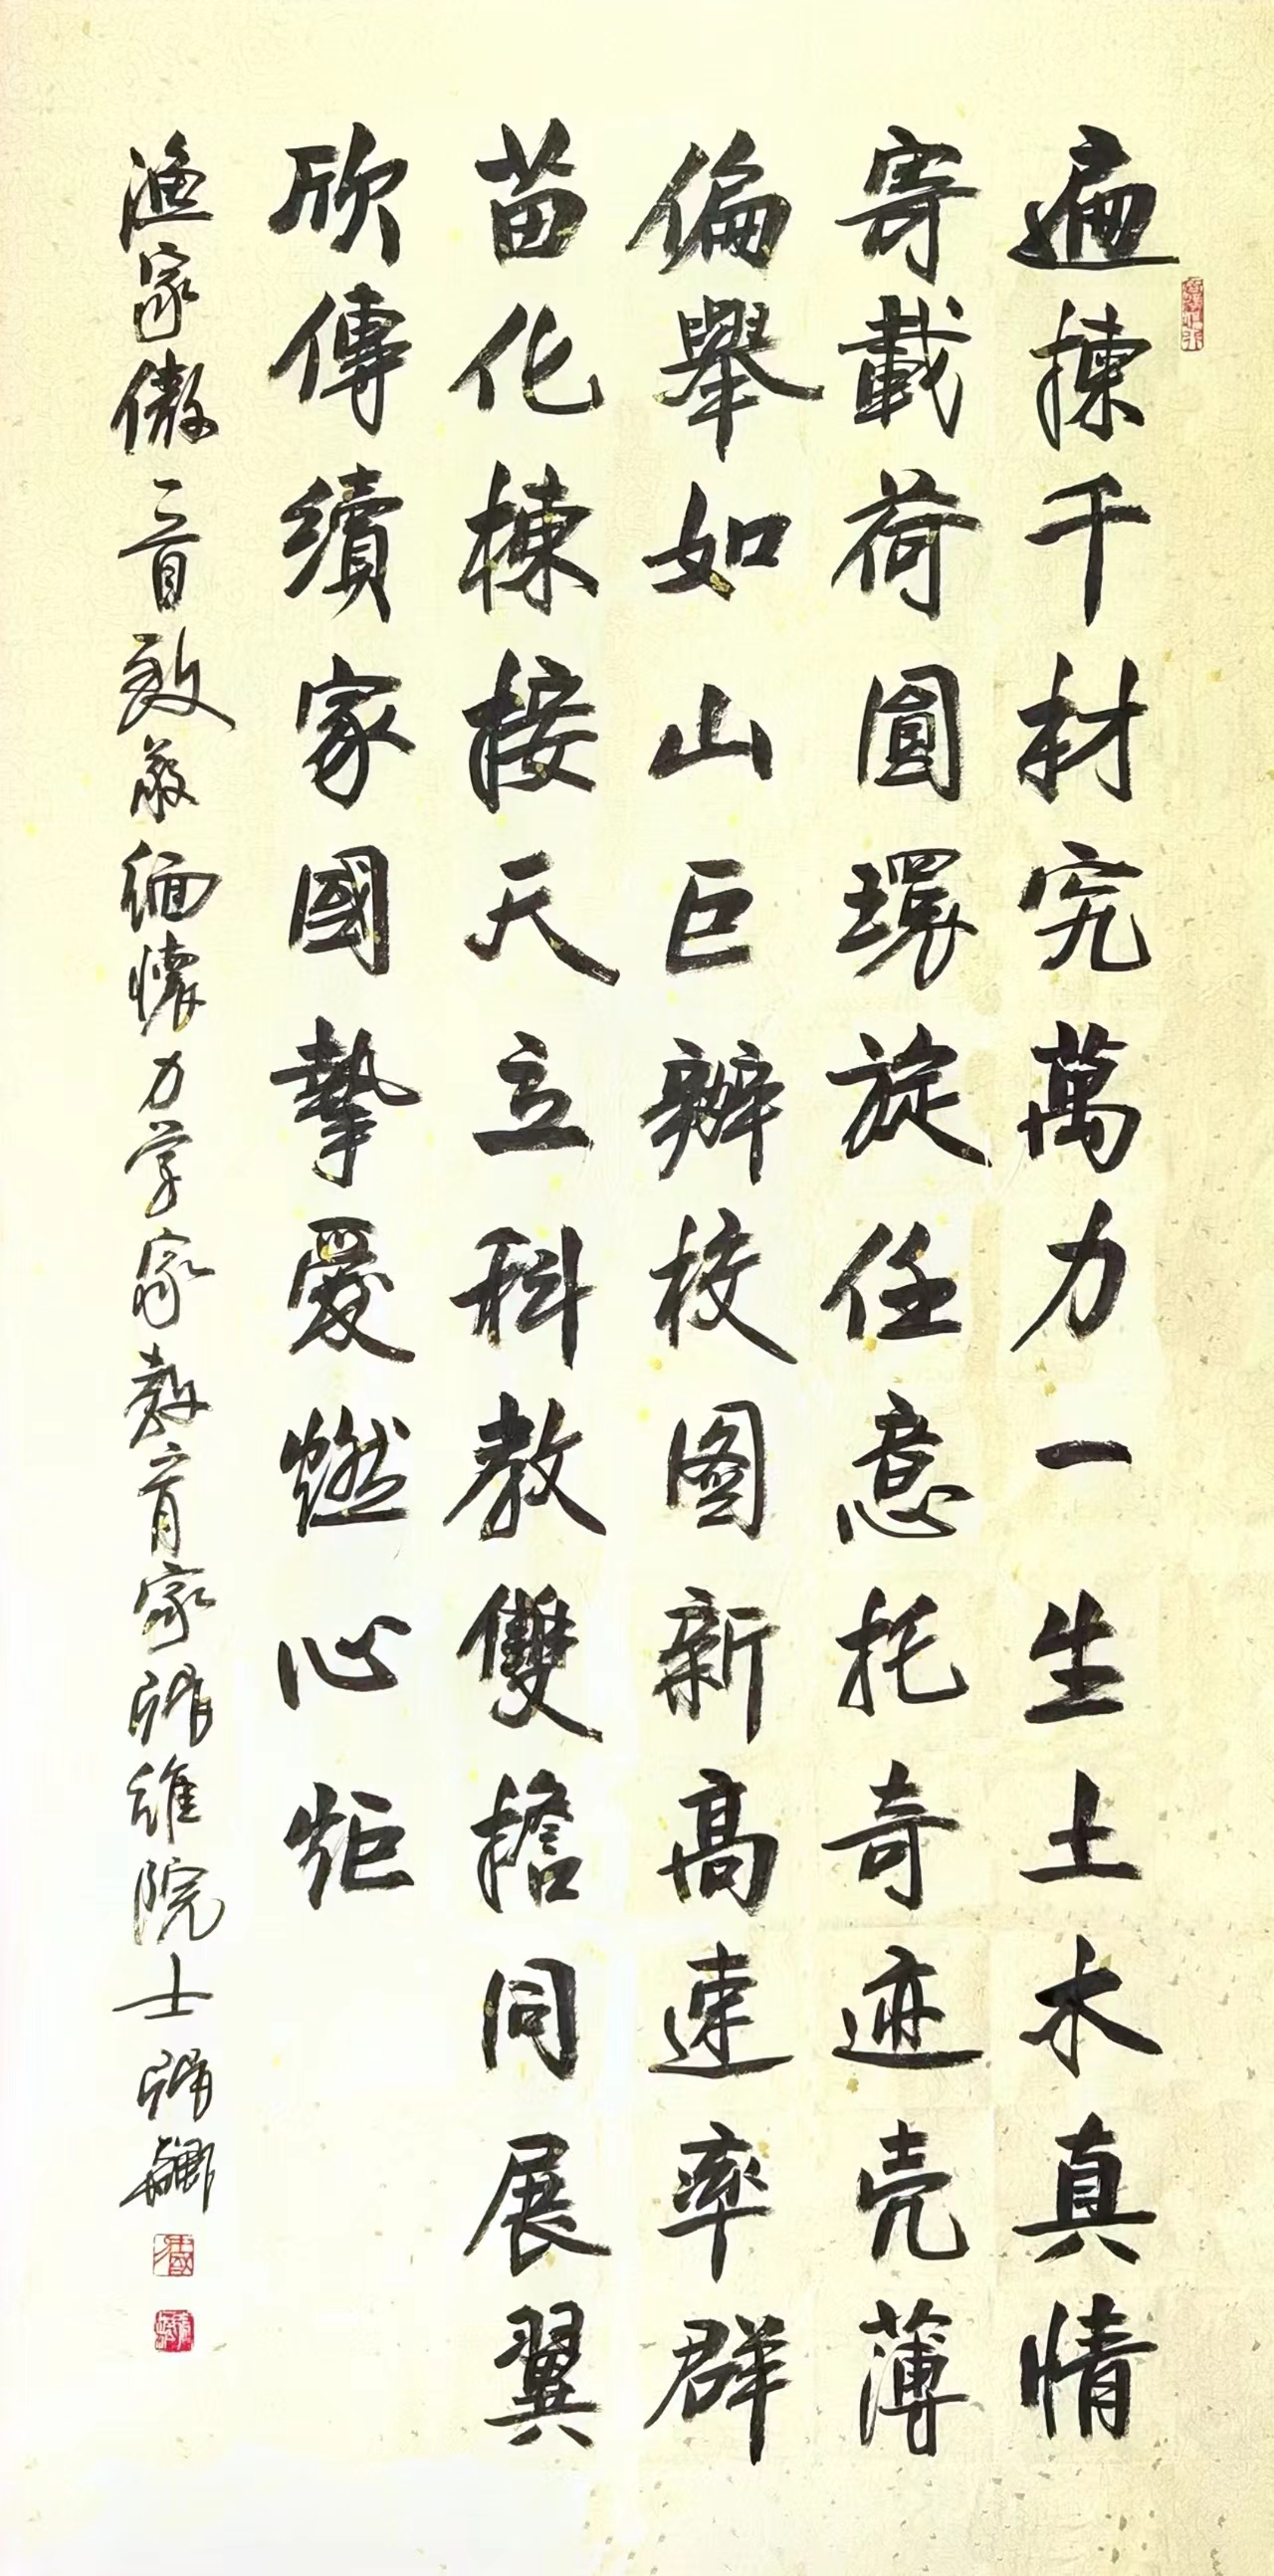 遍揀千材究萬力一生土木真情
寄載荷圓環旋任意托奇迹壳薄
偏舉如山巨辦校图新高速率群
苗化棟接天立科教雙擔同展翼
欣傳續家國摯愛燃心炬
漁家傲一首致敬缅懷力学家教育家張維院士張